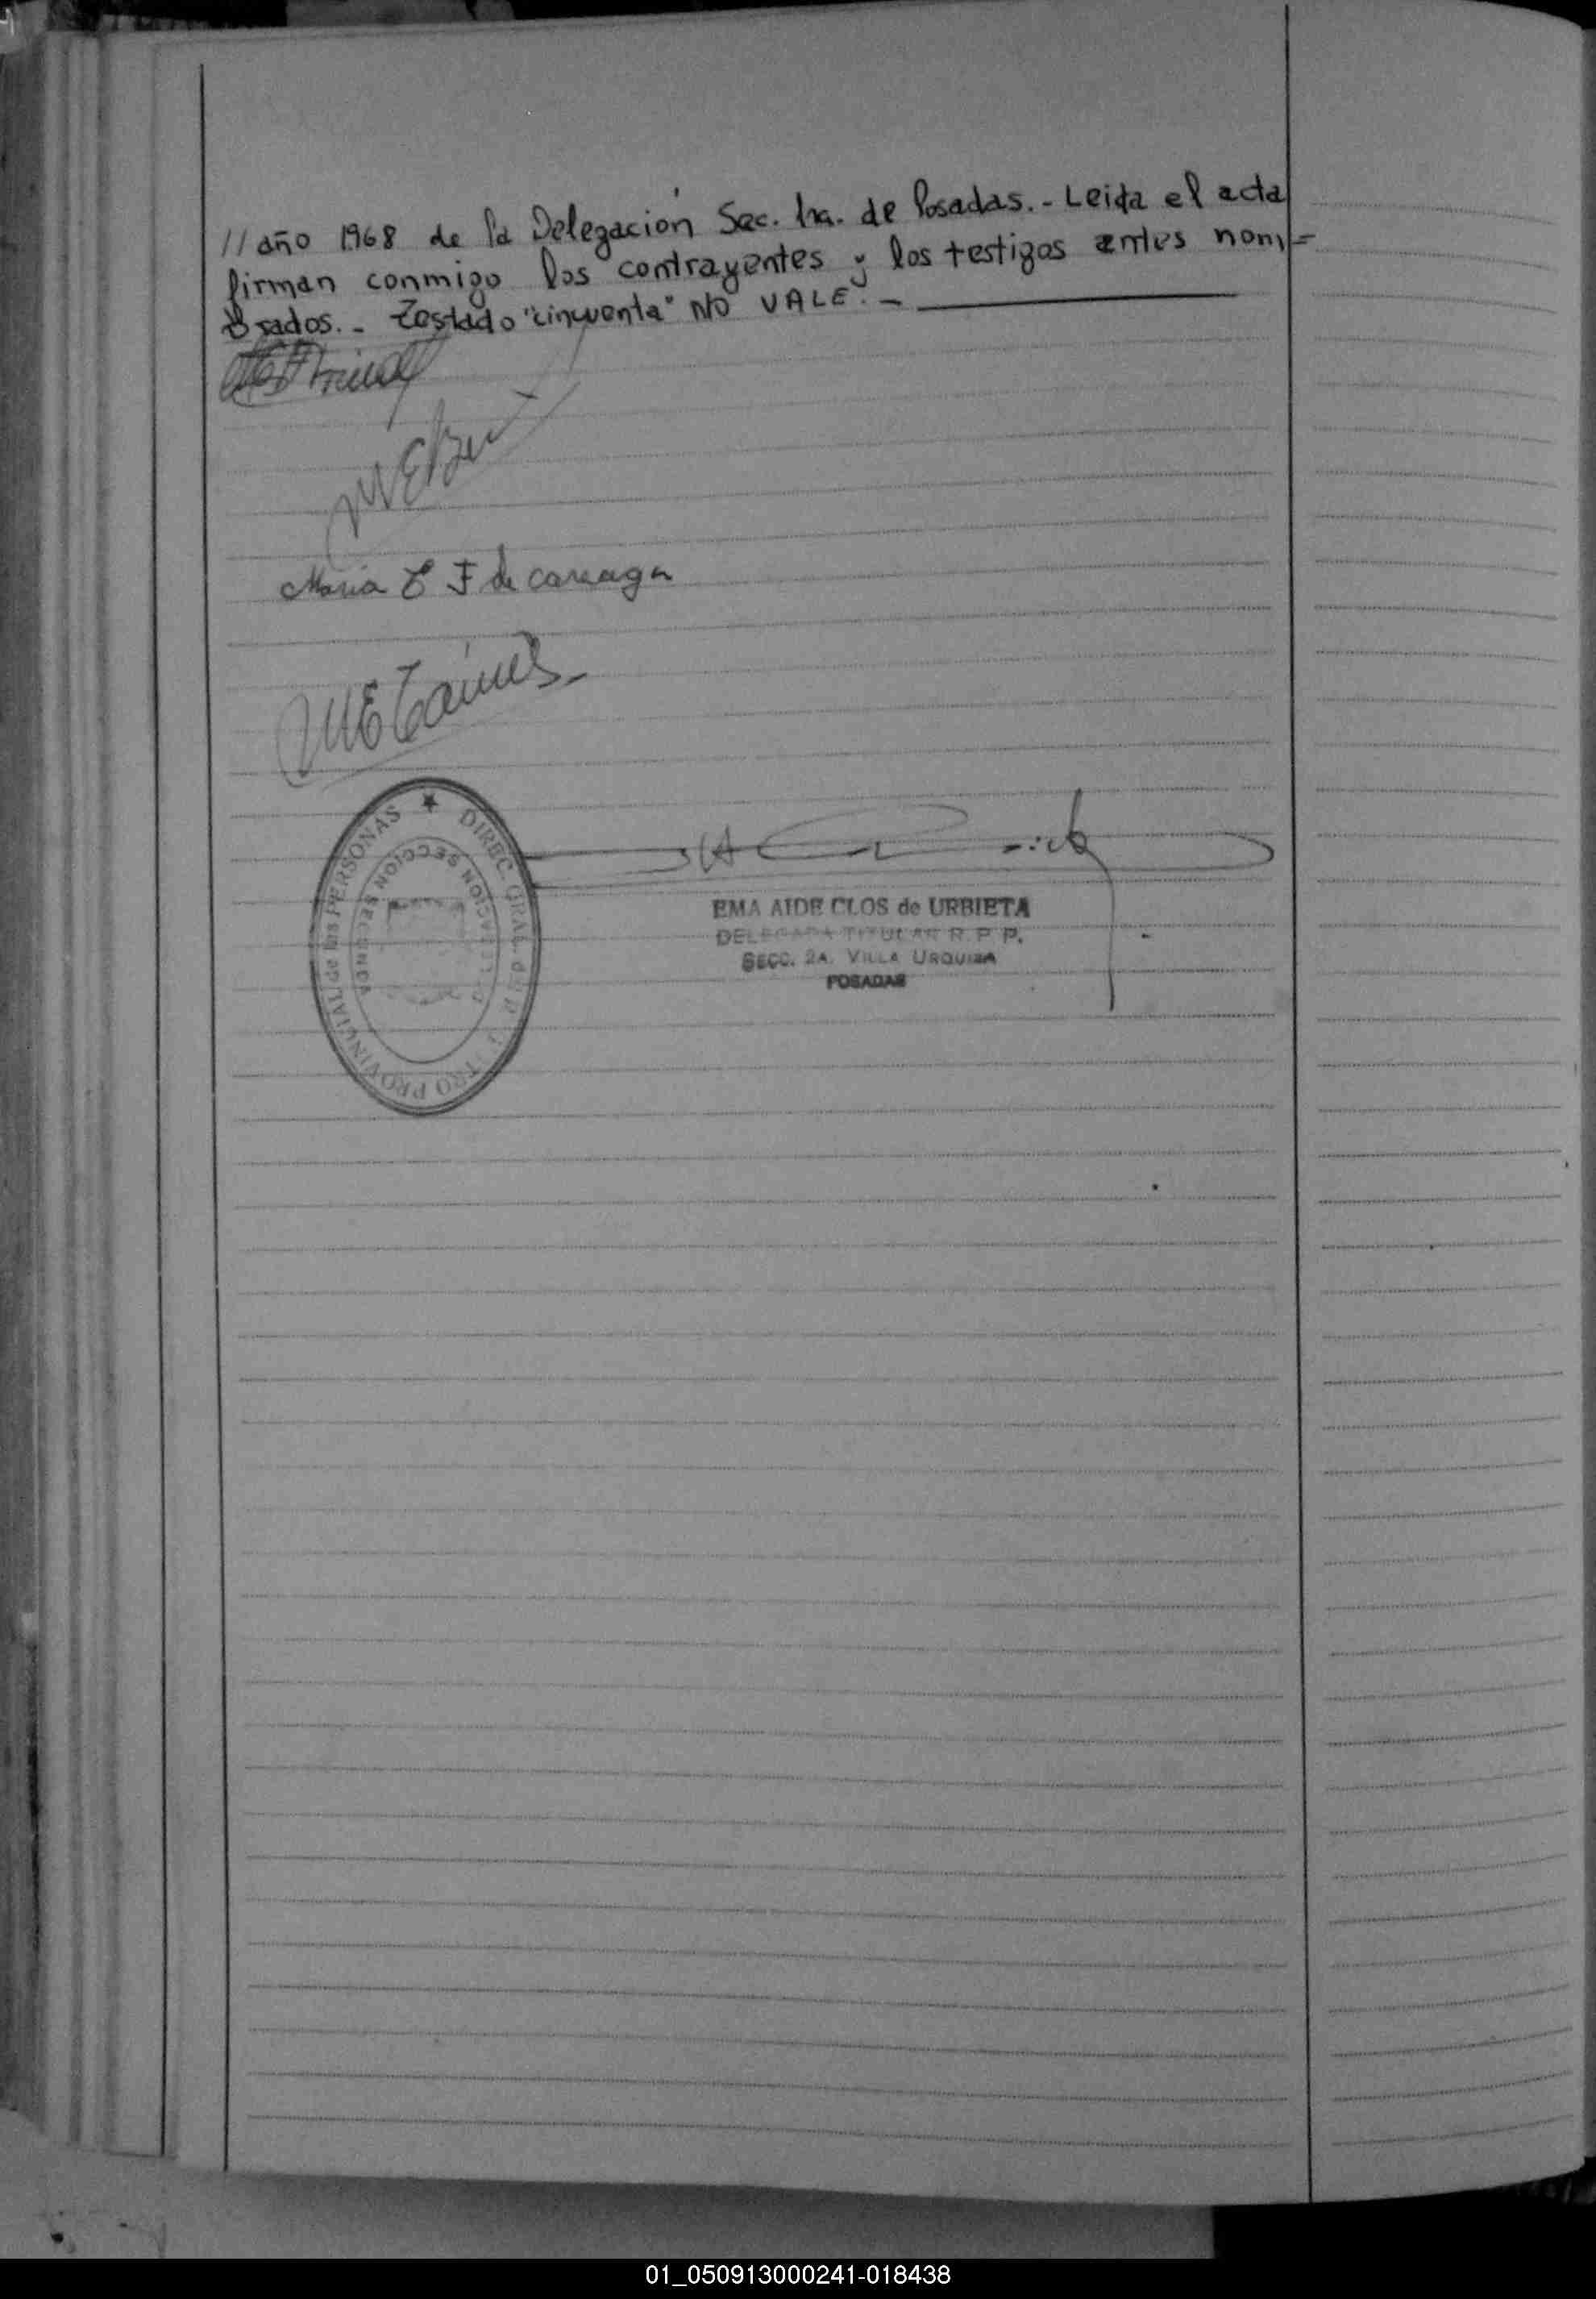 // año 1968 de la Delegación Sec. 1ra. de Posadas.- Leida el acta
firman conmigo los contrayentes y los testigos antes nom=
brados.- Testado "cincuenta" NO VALE.-
Maria E F de careaga
★ DIREC. GRAL. del REGISTRO PROVINCIAL de las PERSONAS
DELEGACION SECCION SEGUNDA
EMA AIDE CLOS de URBIETA
DELEGADA TITULAR R. P. P.
SECC. 2A. VILLA URQUIZA
POSADAS
01_050913000241-018438